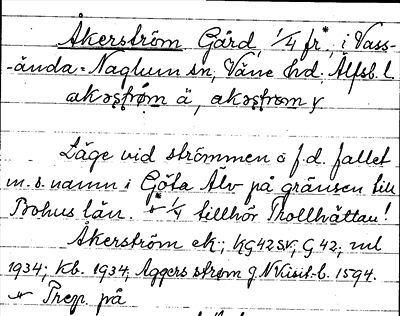 Åkerström Gård, 1/4 fr*, i Vass-
-ända=Naglum sn, Väne hd. Älfsb. l.
Läge vid strömmen o f.d. fallet
m. s. namn i Göta Älv på gränsen till
Bohus län. * 1/4 tillhör Trollhättan!
Åkerström ek; KG42SV; G 42; vul
1934; Kb. 1934; Aggers strøm g N Visit.b. 1594.
Prep. på